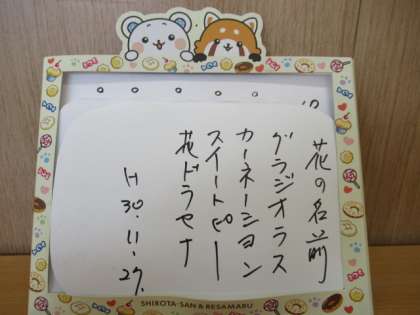 花の名前
グラジオラス
カーネーション
スイートピー
花ドラセナ
H30.11.27.
SHIROTA-SAN & RESAMARU